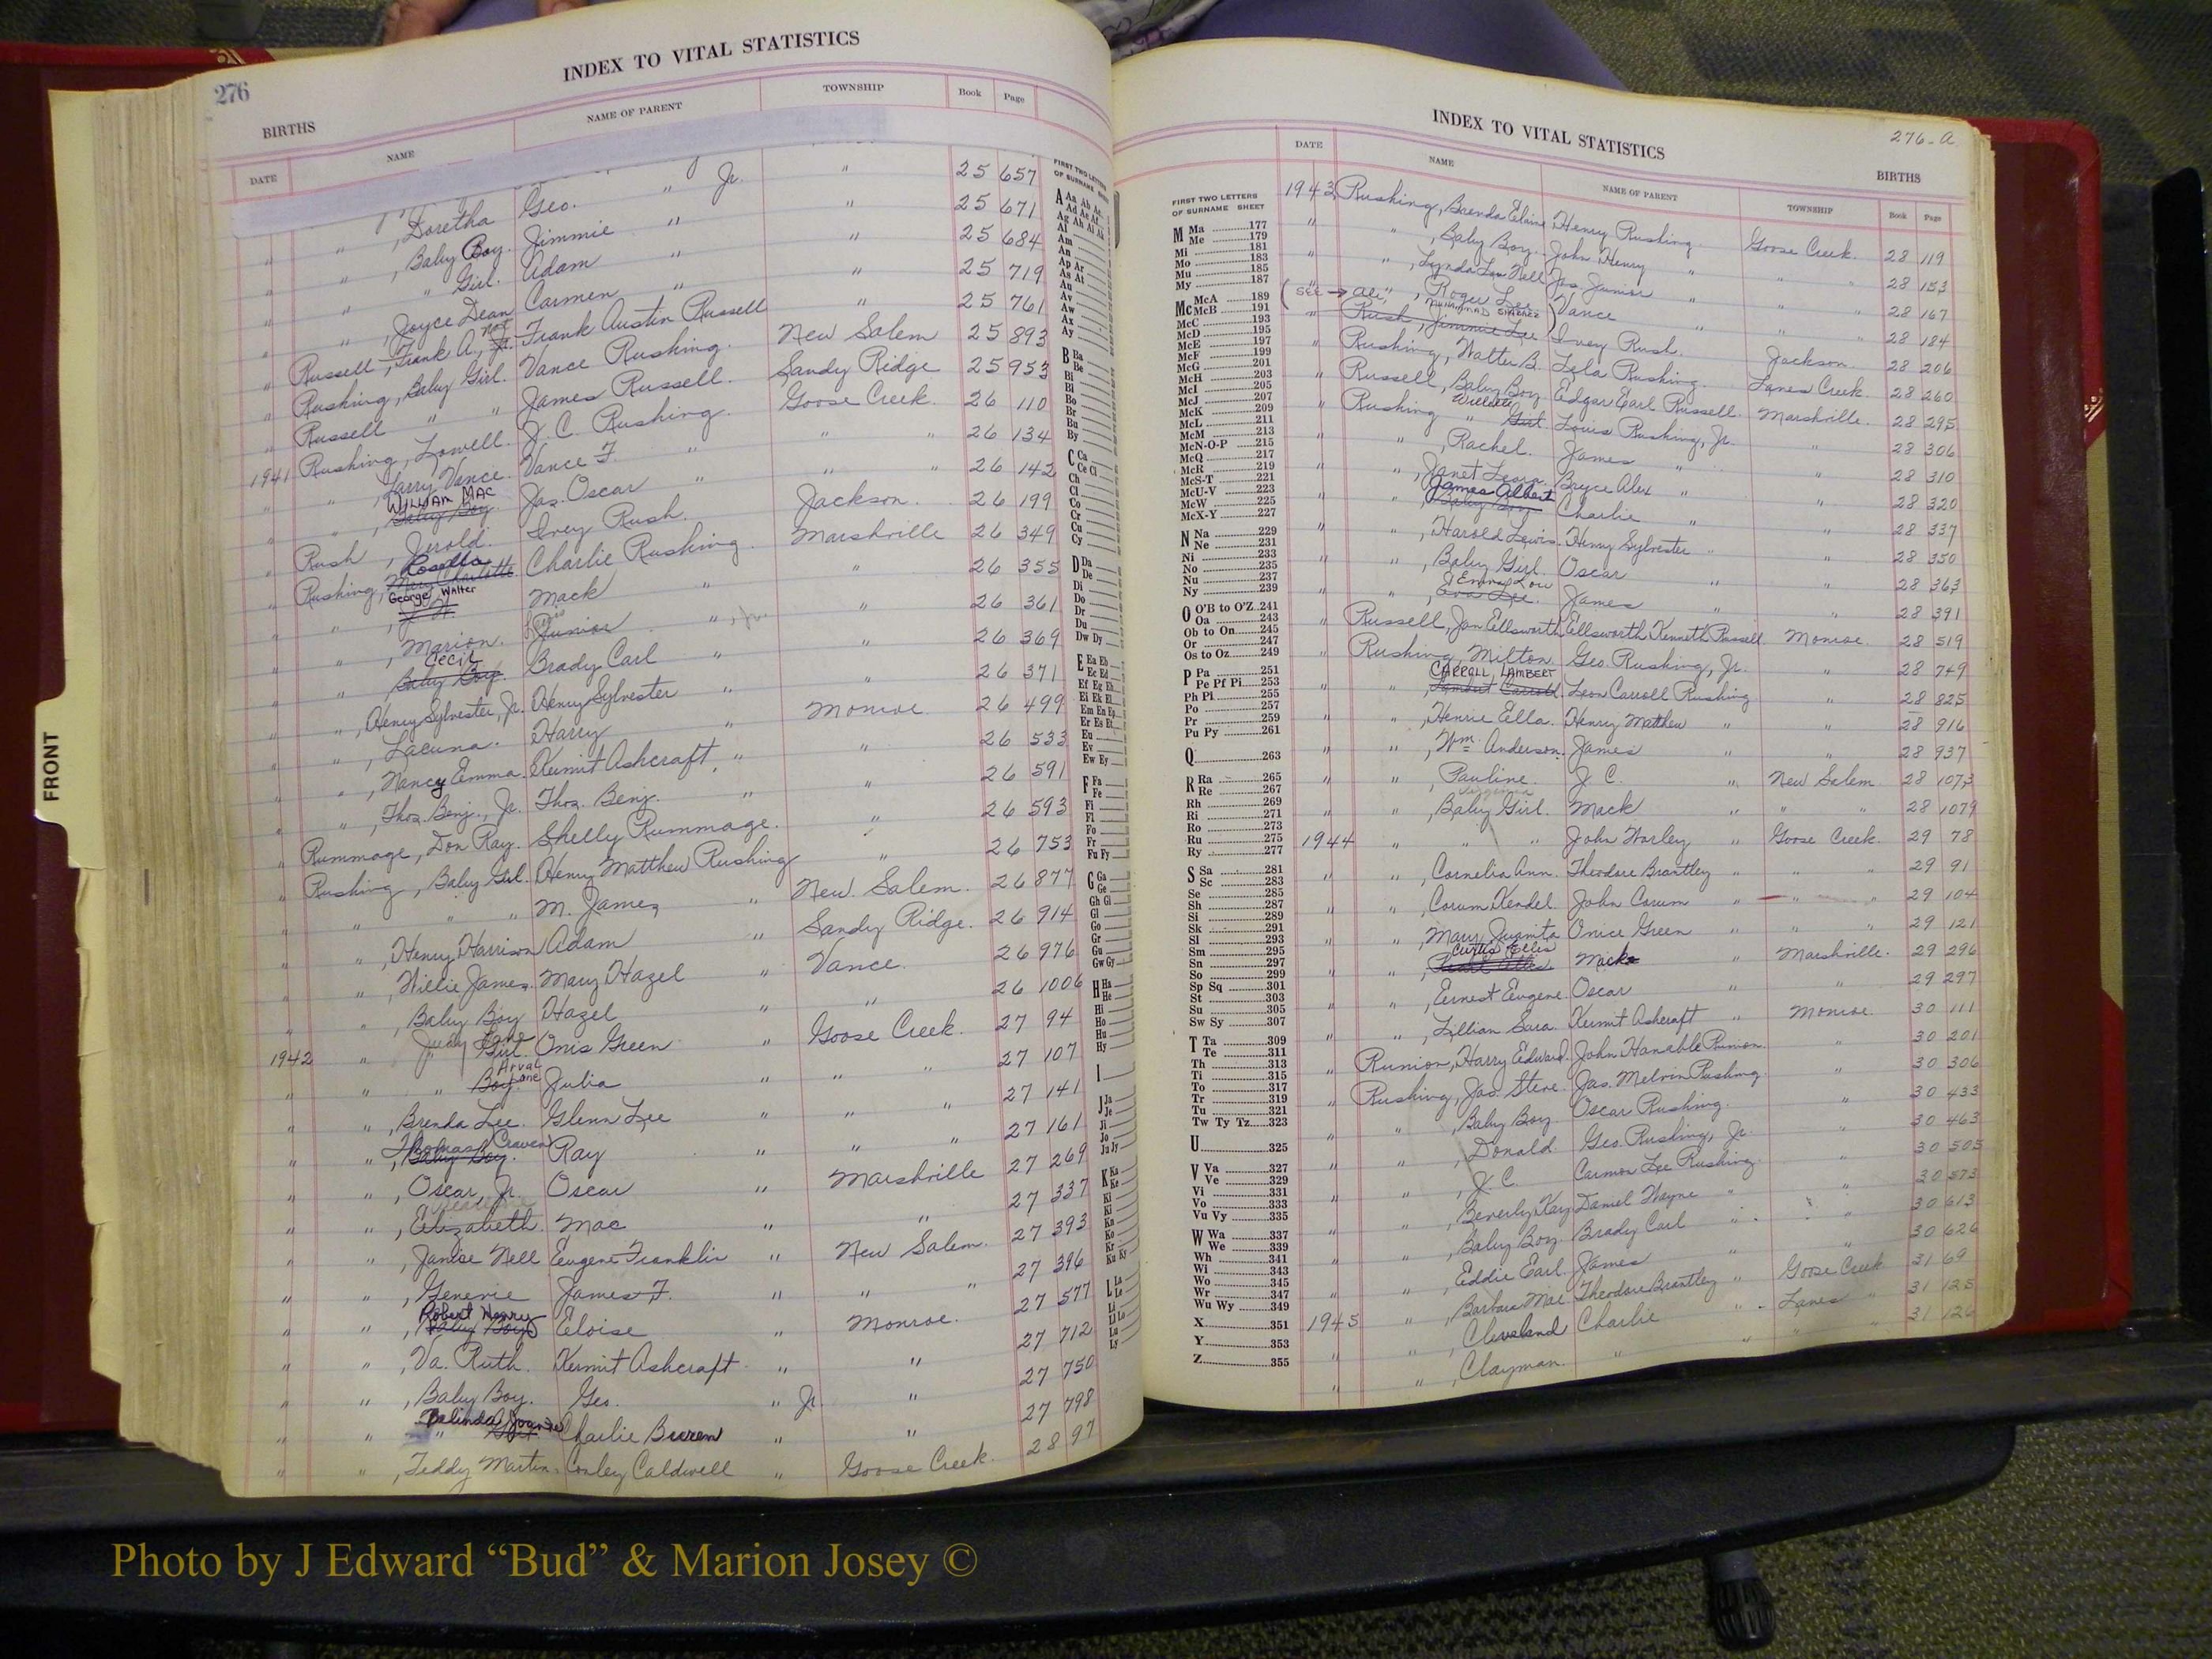 276
INDEX TO VITAL STATISTICS
BIRTHS
DATE NAME NAME OF PARENT TOWNSHIP Book Page
" Jr. " 25 657
" " , Doretha Geo. " " 25 671
" " , Baby Boy. Jimmie " " 25 684
" " " Girl. Adam " " 25 719
" " , Joyce Dean Carmen " " 25 761
" Russell, Frank A., not Jr. Frank Austin Russell New Salem 25 893
" Rushing, Baby Girl. Vance Rushing. Sandy Ridge 25 953
" Russell " " James Russell. Goose Creek. 26 110
1941 Rushing, Lowell. J. C. Rushing. " " 26 134
" " , Larry Vance. Vance F. " " " 26 142
WILLIAM MAC
" " , Baby Boy. Jas. Oscar " Jackson. 26 199
" Rush , Jerold. Ivey Rush. Marshville 26 349
Rosella
" Rushing, Mary Charlotte Charlie Rushing. " 26 355
George Walter
" " , Mack " " 26 361
" " , Marion. Junior " , Jr. " 26 369
Cecil
" " , Baby Boy. Brady Carl " " 26 371
" " , Henry Sylvester, Jr. Henry Sylvester " Monroe 26 499
" " , Lacuna. Harry " " 26 533
" " , Nancy Emma. Kermit Ashcraft, " " 26 591
" " , Thos. Benj., Jr. Thos. Benj. " " 26 593
" Rummage, Don Ray. Shelly Rummage. " 26 753
" Rushing, Baby Girl. Henry Matthew Rushing New Salem. 26 877
" " " M. James " Sandy Ridge. 26 914
" " , Henry Harrison Adam " Vance. 26 976
" " , Willie James. Mary Hazel " " 26 1006
" " , Baby Boy Hazel " Goose Creek. 27 94
Judy Jane
1942 " " Girl. Onis Green " " " 27 107
Arval
" " " Boy. Julia " " " 27 141
" " , Brenda Lee. Glenn Lee " " " 27 161
Thomas Craven
" " , Baby Boy. Ray " Marshville 27 269
" " , Oscar, Jr. Oscar " " 27 337
" " , Elizabeth. Mac " New Salem. 27 393
" " , Janise Nell Eugene Franklin " " " 27 396
" " , Generie James F. " Monroe. 27 577
Robert Henry
" " , Baby Boy Eloise " " 27 712
" " , Va. Ruth. Kermit Ashcraft. " " 27 750
" " , Baby Boy. Geo. " Jr. " 27 798
" " " Charlie Buren " Goose Creek. 28 97
" " , Teddy Martin. Conley Caldwell "
FIRST TWO LETTERS
OF SURNAME
FRONT
INDEX TO VITAL STATISTICS
276-a
BIRTHS
DATE NAME NAME OF PARENT TOWNSHIP Book Page
1943 Rushing, Brenda Elaine Henry Rushing. Goose Creek. 28 119
" " , Baby Boy. John Henry " " " 28 153
" " , Lynda Lou Nell Jas. Junior " " 28 167
(see → Ali," , Roger Lee Vance " " 28 184
MUHAMMAD
" Rush, Jimmie Lee Ivey Rush. Jackson. 28 206
" Rushing, Walter B. Lela Rushing. Lanes Creek. 28 260
" Russell, Baby Boy Edgar Earl Russell. Marshville. 28 295
Willette
" Rushing " Girl. Louis Rushing, Jr. " 28 306
" " , Rachel. James " " 28 310
" " , Janet Leora. Bryce Alex " " 28 320
James Albert
" " , Baby Boy Charlie " " 28 337
" " , Harold Lewis. Henry Sylvester " " 28 350
" " , Baby Girl. Oscar " " 28 363
Emma Lou
" " , Eva Lee. James " " 28 391
" Russell, Jan Ellsworth Ellsworth Kenneth Russell Monroe. 28 519
" Rushing, Milton. Geo. Rushing, Jr. " 28 749
CARROLL LAMBERT
" " , Lambert Carroll. Leon Carroll Rushing " 28 825
" " , Henrie Ella. Henry Matthew " " 28 916
" " , Wm. Anderson. James " " 28 937
" " , Pauline. J. C. " New Salem 28 1073
Virginia
" " , Baby Girl. Mack " " " 28 1079
1944 " " " John Worley " Goose Creek. 29 78
" " , Cornelia Ann. Theodore Brantley " " " 29 91
" " , Corum Kendel. John Corum " " " 29 104
" " , Mary Juanita Onice Green " " " 29 121
Curtis Ellis
" " , Mack " Marshville. 29 296
" " , Ernest Eugene. Oscar " " 29 297
" " , Lillian Sara. Kermit Ashcraft " Monroe. 30 111
" Runion, Harry Edward. John Hanable Runion. " 30 201
" Rushing, Jas. Steve. Jas. Melvin Rushing. " 30 306
" " , Baby Boy. Oscar Rushing. " 30 433
" " , Donald. Geo. Rushing, Jr. " 30 463
" " , J. C. Carmon Lee Rushing. " 30 505
" " , Beverly Kay Daniel Wayne " " 30 573
" " , Baby Boy. Brady Carl " " 30 613
" " , Eddie Earl. James " " 30 626
" " , Barbara Mae. Theodore Brantley " Goose Creek 31 69
1945 " , Cleveland Charlie " Lanes " 31 125
" " , Clayman. " " " " 31 126
FIRST TWO LETTERS
OF SURNAME SHEET
M Ma 177
Me 179
Mi 181
Mo 183
Mu 185
My 187
Mc McA 189
McB 191
McC 193
McD 195
McE 197
McF 199
McG 201
McH 203
McI 205
McJ 207
McK 209
McL 211
McM 213
McN-O-P 215
McQ 217
McR 219
McS-T 221
McU-V 223
McW 225
McX-Y 227
N Na 229
Ne 231
Ni 233
No 235
Nu 237
Ny 239
O O'B to O'Z 241
Oa 243
Ob to On 245
Or 247
Os to Oz 249
P Pa 251
Pe Pf Pi 253
Ph Pl 255
Po 257
Pr 259
Pu Py 261
Q 263
R Ra 265
Re 267
Rh 269
Ri 271
Ro 273
Ru 275
Ry 277
S Sa 281
Sc 283
Se 285
Sh 287
Si 289
Sk 291
Sl 293
Sm 295
Sn 297
So 299
Sp Sq 301
St 303
Su 305
Sw Sy 307
T Ta 309
Te 311
Th 313
Ti 315
To 317
Tr 319
Tu 321
Tw Ty Tz 323
U 325
V Va 327
Ve 329
Vi 331
Vo 333
Vu Vy 335
W Wa 337
We 339
Wh 341
Wi 343
Wo 345
Wr 347
Wu Wy 349
X 351
Y 353
Z 355
Photo by J Edward “Bud” & Marion Josey ©